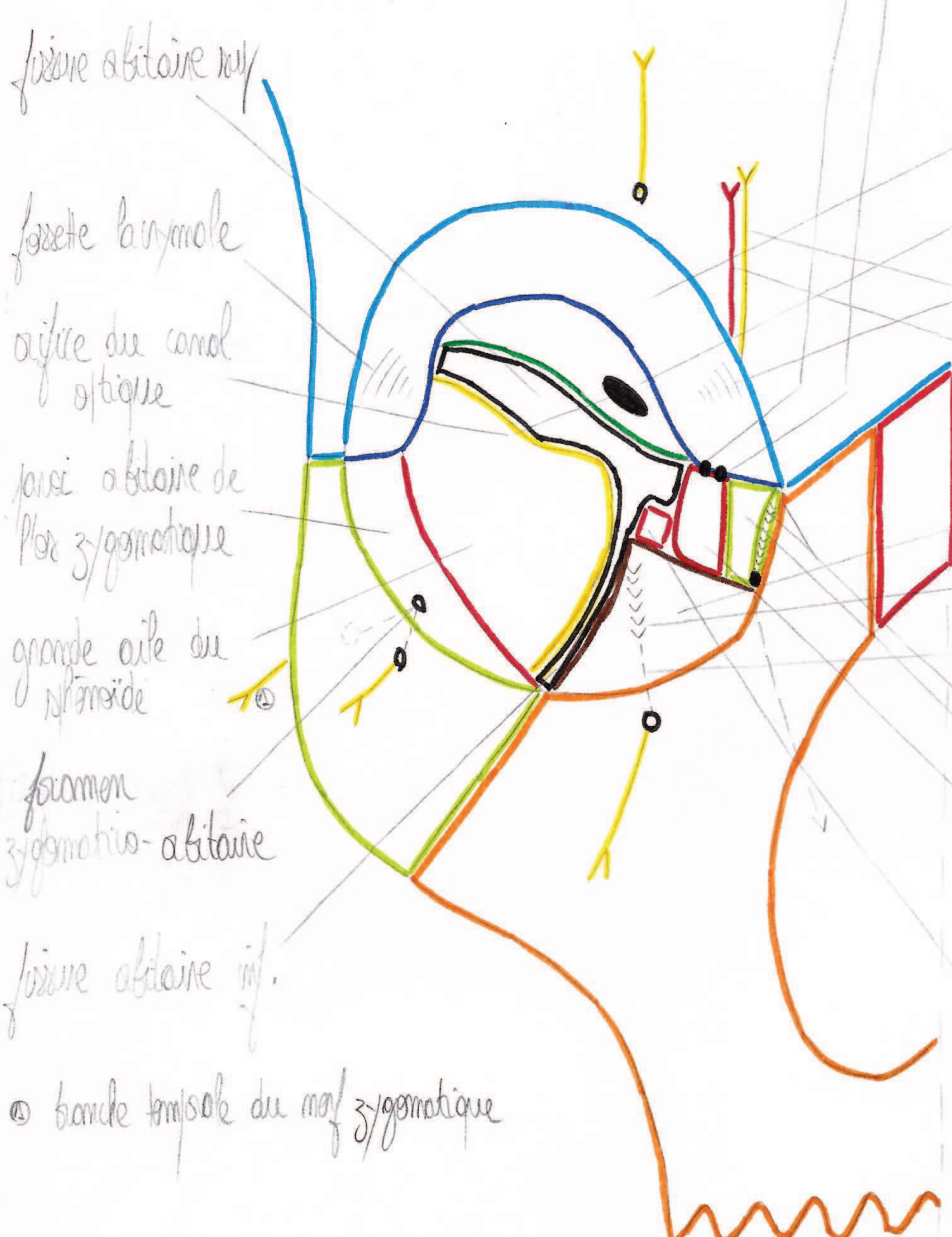 fissure orbitaire sup
fossette lacrymale
orifice du canal
optique
paroi orbitaire de
l'os zygomatique
grande aile du
sphénoïde
①
foramen
zygomatico-orbitaire
fissure orbitaire inf.
① branche temporale du nerf zygomatique